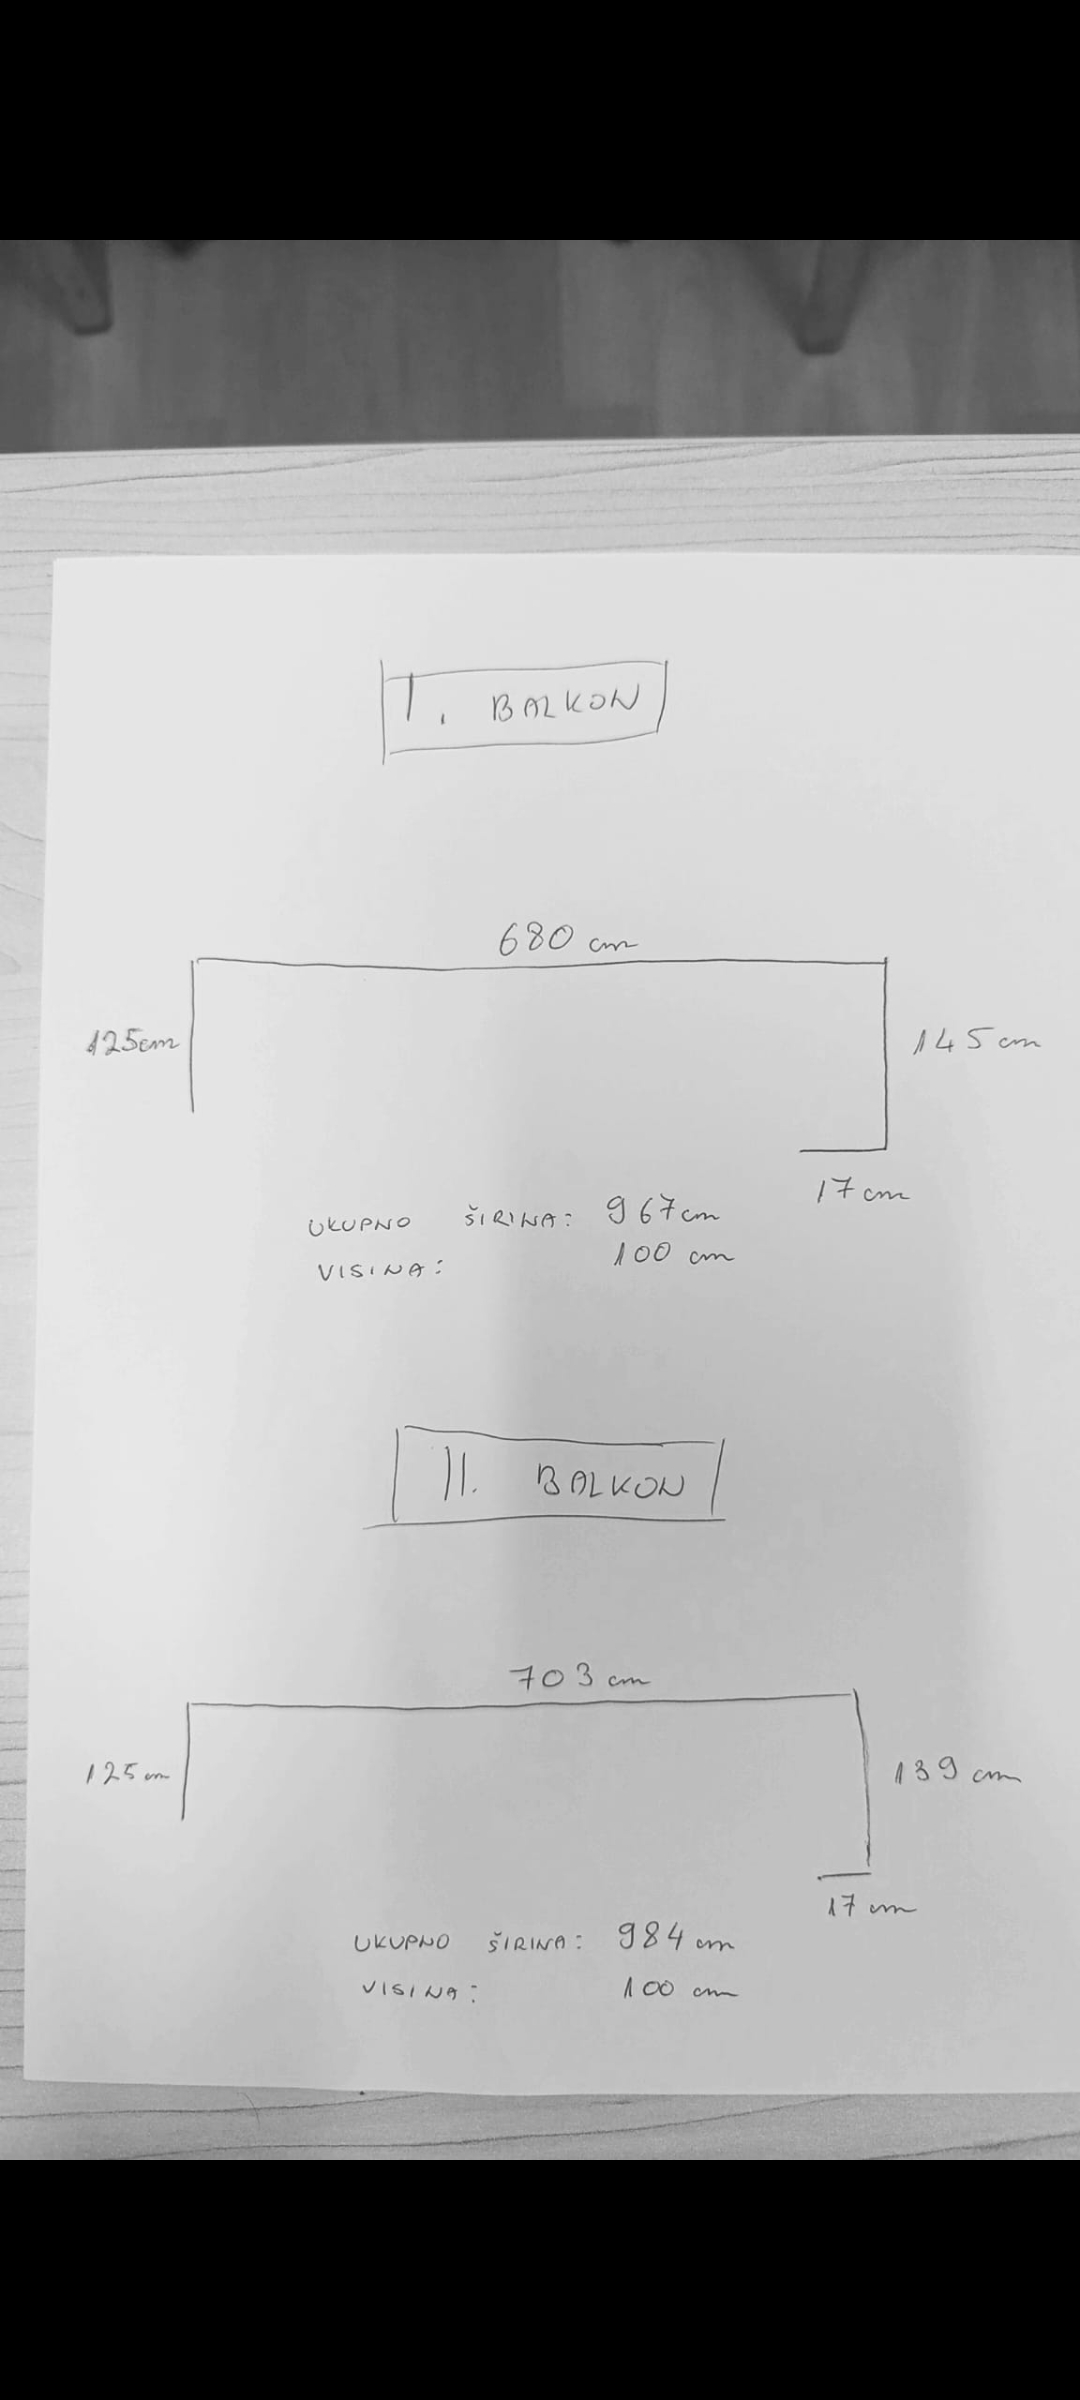 I. BALKON
680 cm
125cm
145 cm
17 cm
UKUPNO ŠIRINA: 967cm
VISINA: 100 cm
II. BALKON
703 cm
125 cm
139 cm
17 cm
UKUPNO ŠIRINA: 984 cm
VISINA: 100 cm